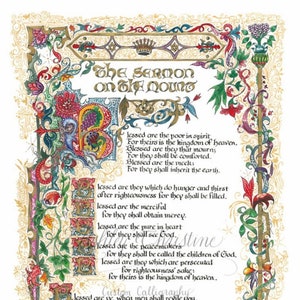 THE SERMON
ON THE MOUNT
Blessed are the poor in spirit,
For theirs is the kingdom of heaven.
Blessed are they that mourn;
For they shall be comforted.
Blessed are the meek;
For they shall inherit the earth.
Blessed are they which do hunger and thirst
after righteousness for they shall be filled.
Blessed are the merciful
for they shall obtain mercy.
Blessed are the pure in heart
for they shall see God.
Blessed are the peacemakers
for they shall be called the children of God.
Blessed are they which are persecuted
for righteousness' sake;
for theirs is the kingdom of heaven.
Custom Calligraphy
Blessed are ye, when men shall revile you